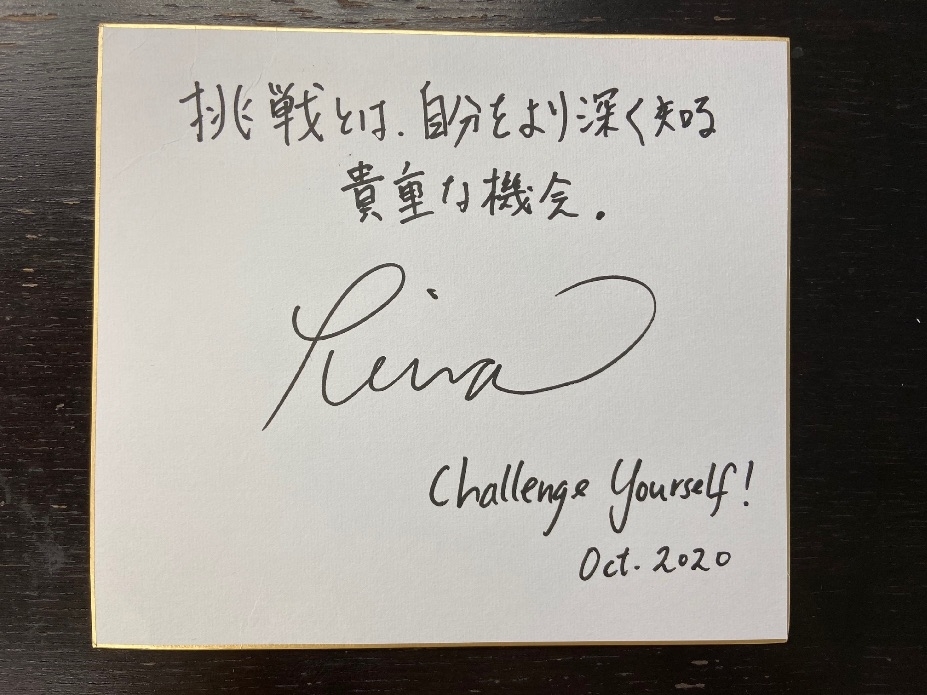 挑戦とは、自分をより深く知る
貴重な機会.
Challenge Yourself!
Oct. 2020